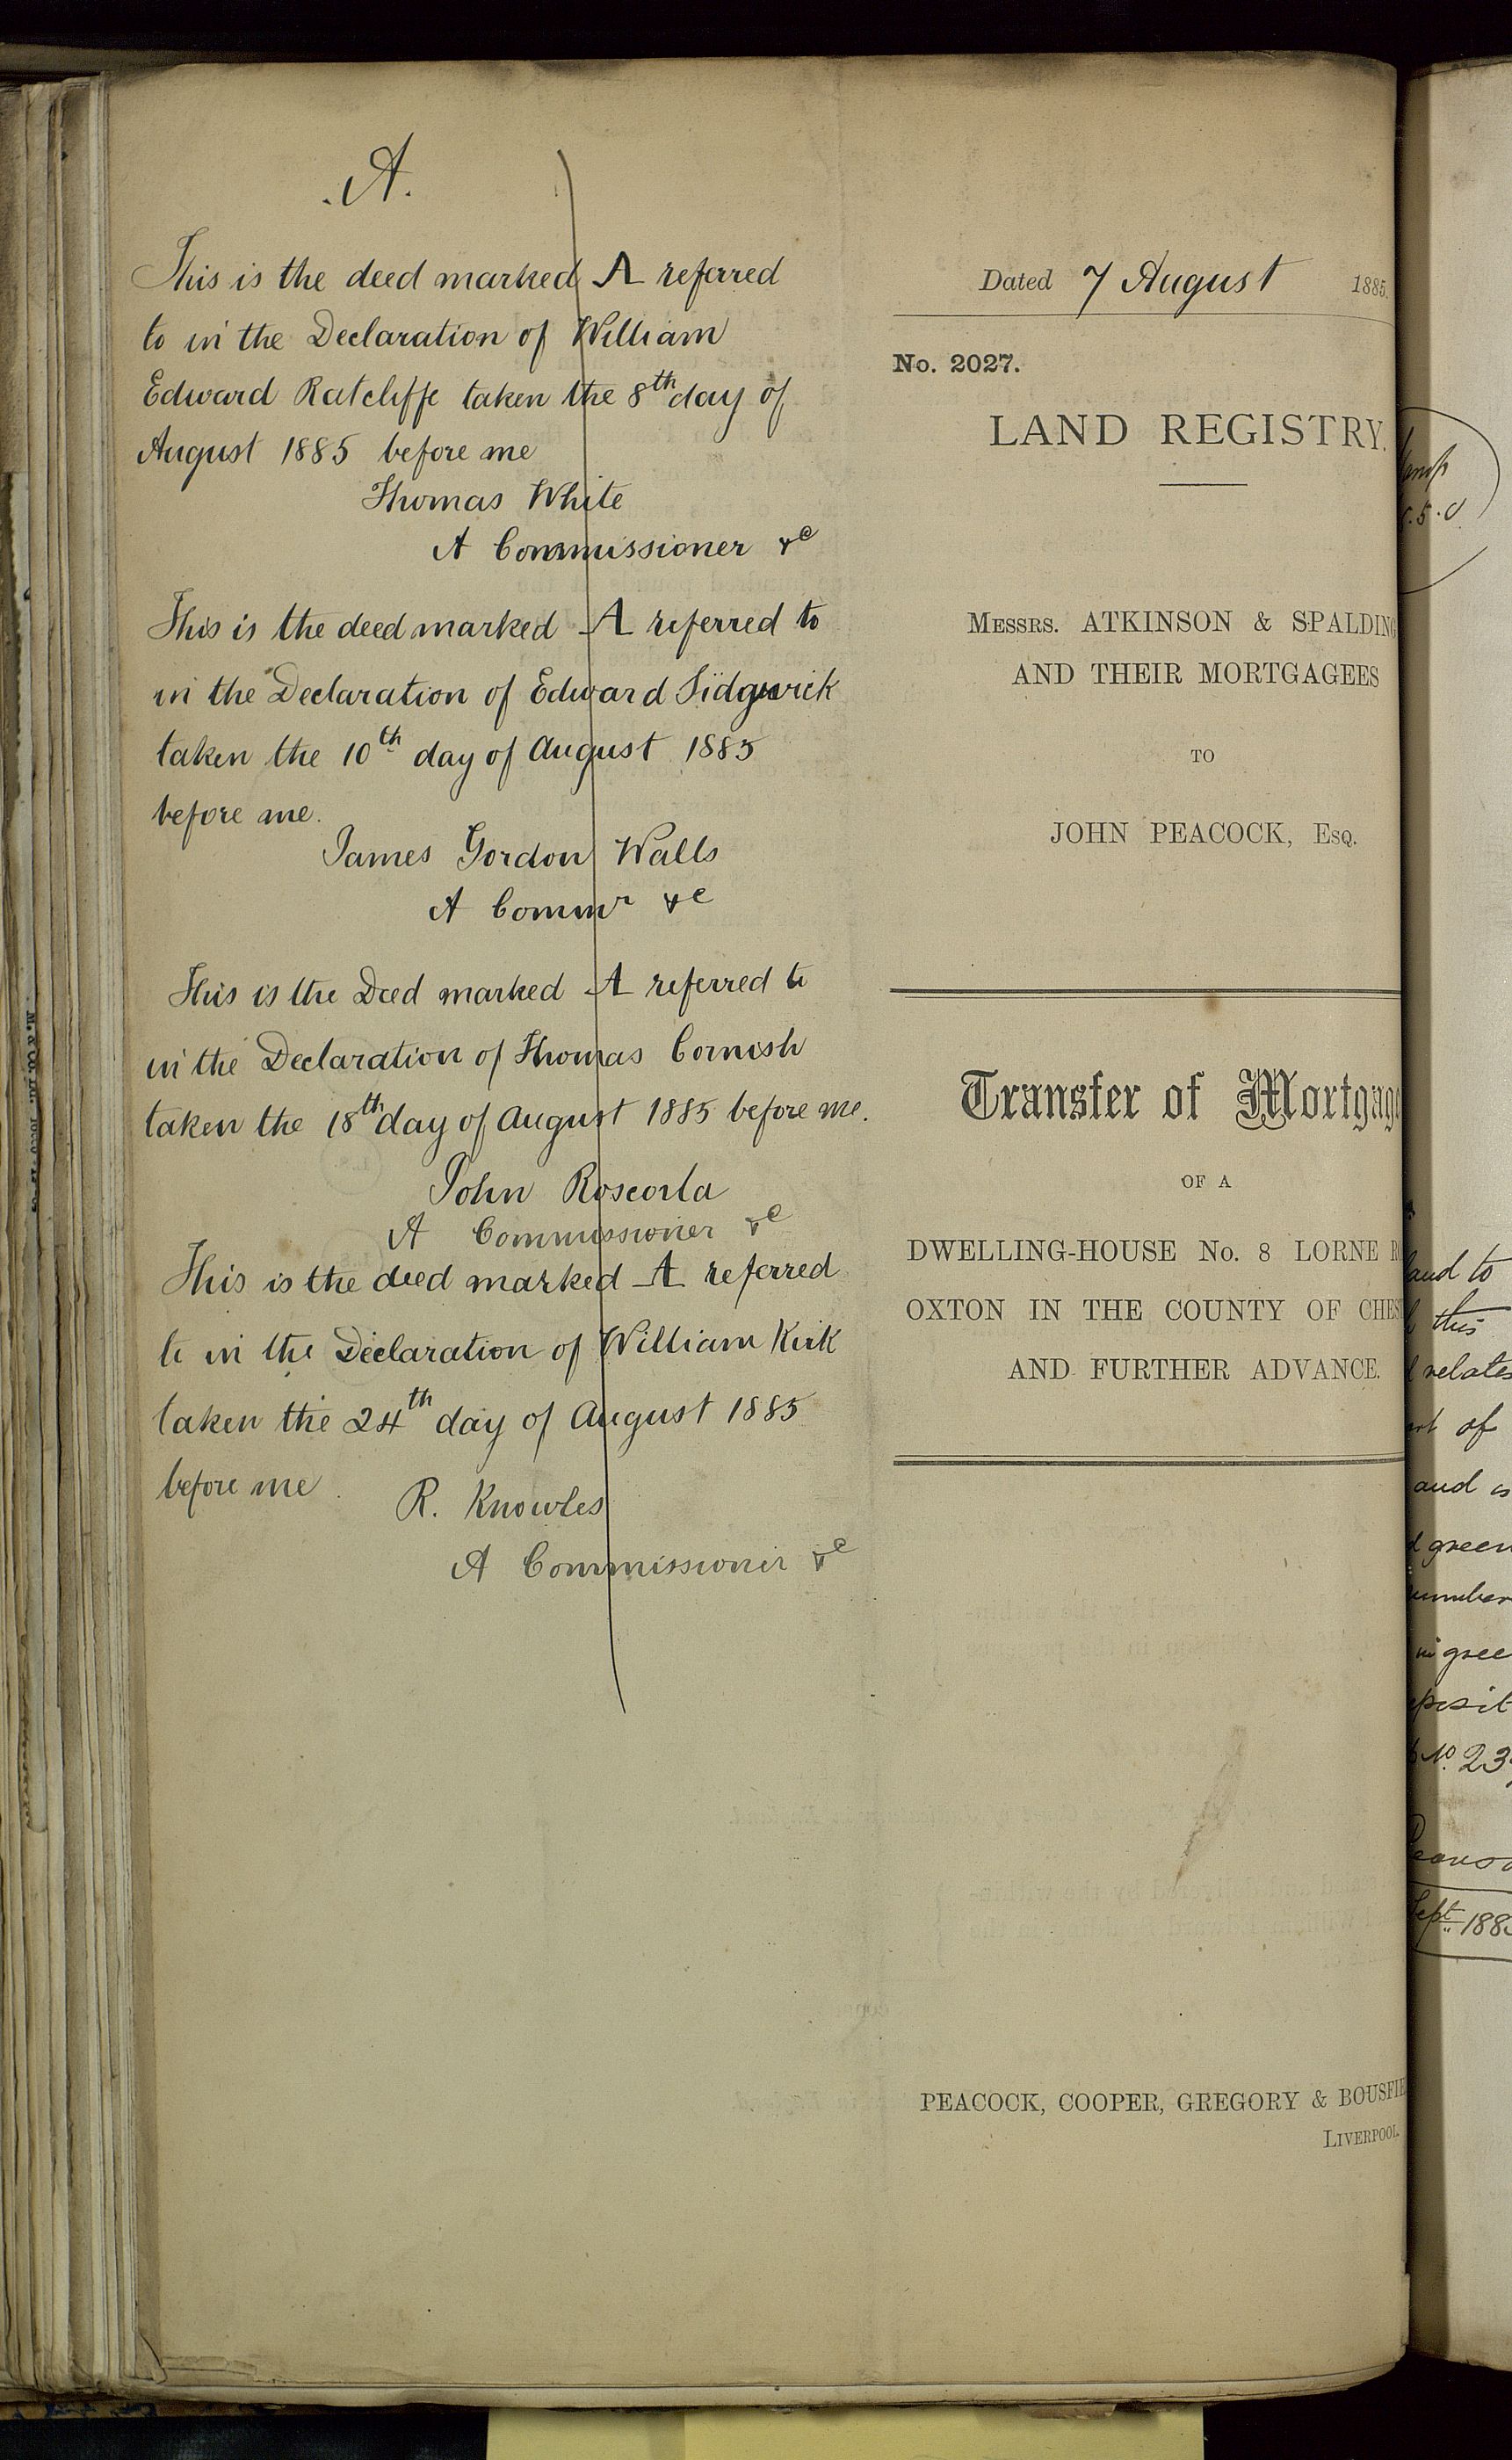 .A.
This is the deed marked A referred
to in the Declaration of William
Edward Ratcliffe taken the 8th day of
August 1885 before me
Thomas White
A Commissioner &c
This is the deed marked A referred to
in the Declaration of Edward Sidgwick
taken the 10th day of August 1885
before me.
James Gordon Walls
A Commr &c
This is the Deed marked A referred to
in the Declaration of Thomas Cornish
taken the 18th day of August 1885 before me.
John Roscorla
A Commissioner &c
This is the deed marked A referred
to in the Declaration of William Kirk
taken the 24th day of August 1885
before me.
R. Knowles
A Commissioner &c
Dated 7 August 1885.
No. 2027.
LAND REGISTRY.
Messrs. ATKINSON & SPALDING
AND THEIR MORTGAGEES
TO
JOHN PEACOCK, Esq.
Transfer of Mortgage
OF A
DWELLING-HOUSE No. 8 LORNE R
OXTON IN THE COUNTY OF CHES
AND FURTHER ADVANCE.
PEACOCK, COOPER, GREGORY & BOUSFIE
Liverpool.
and to
this
relates
of
and is
green
umber
in gree
posit
No. 23
Sept 188